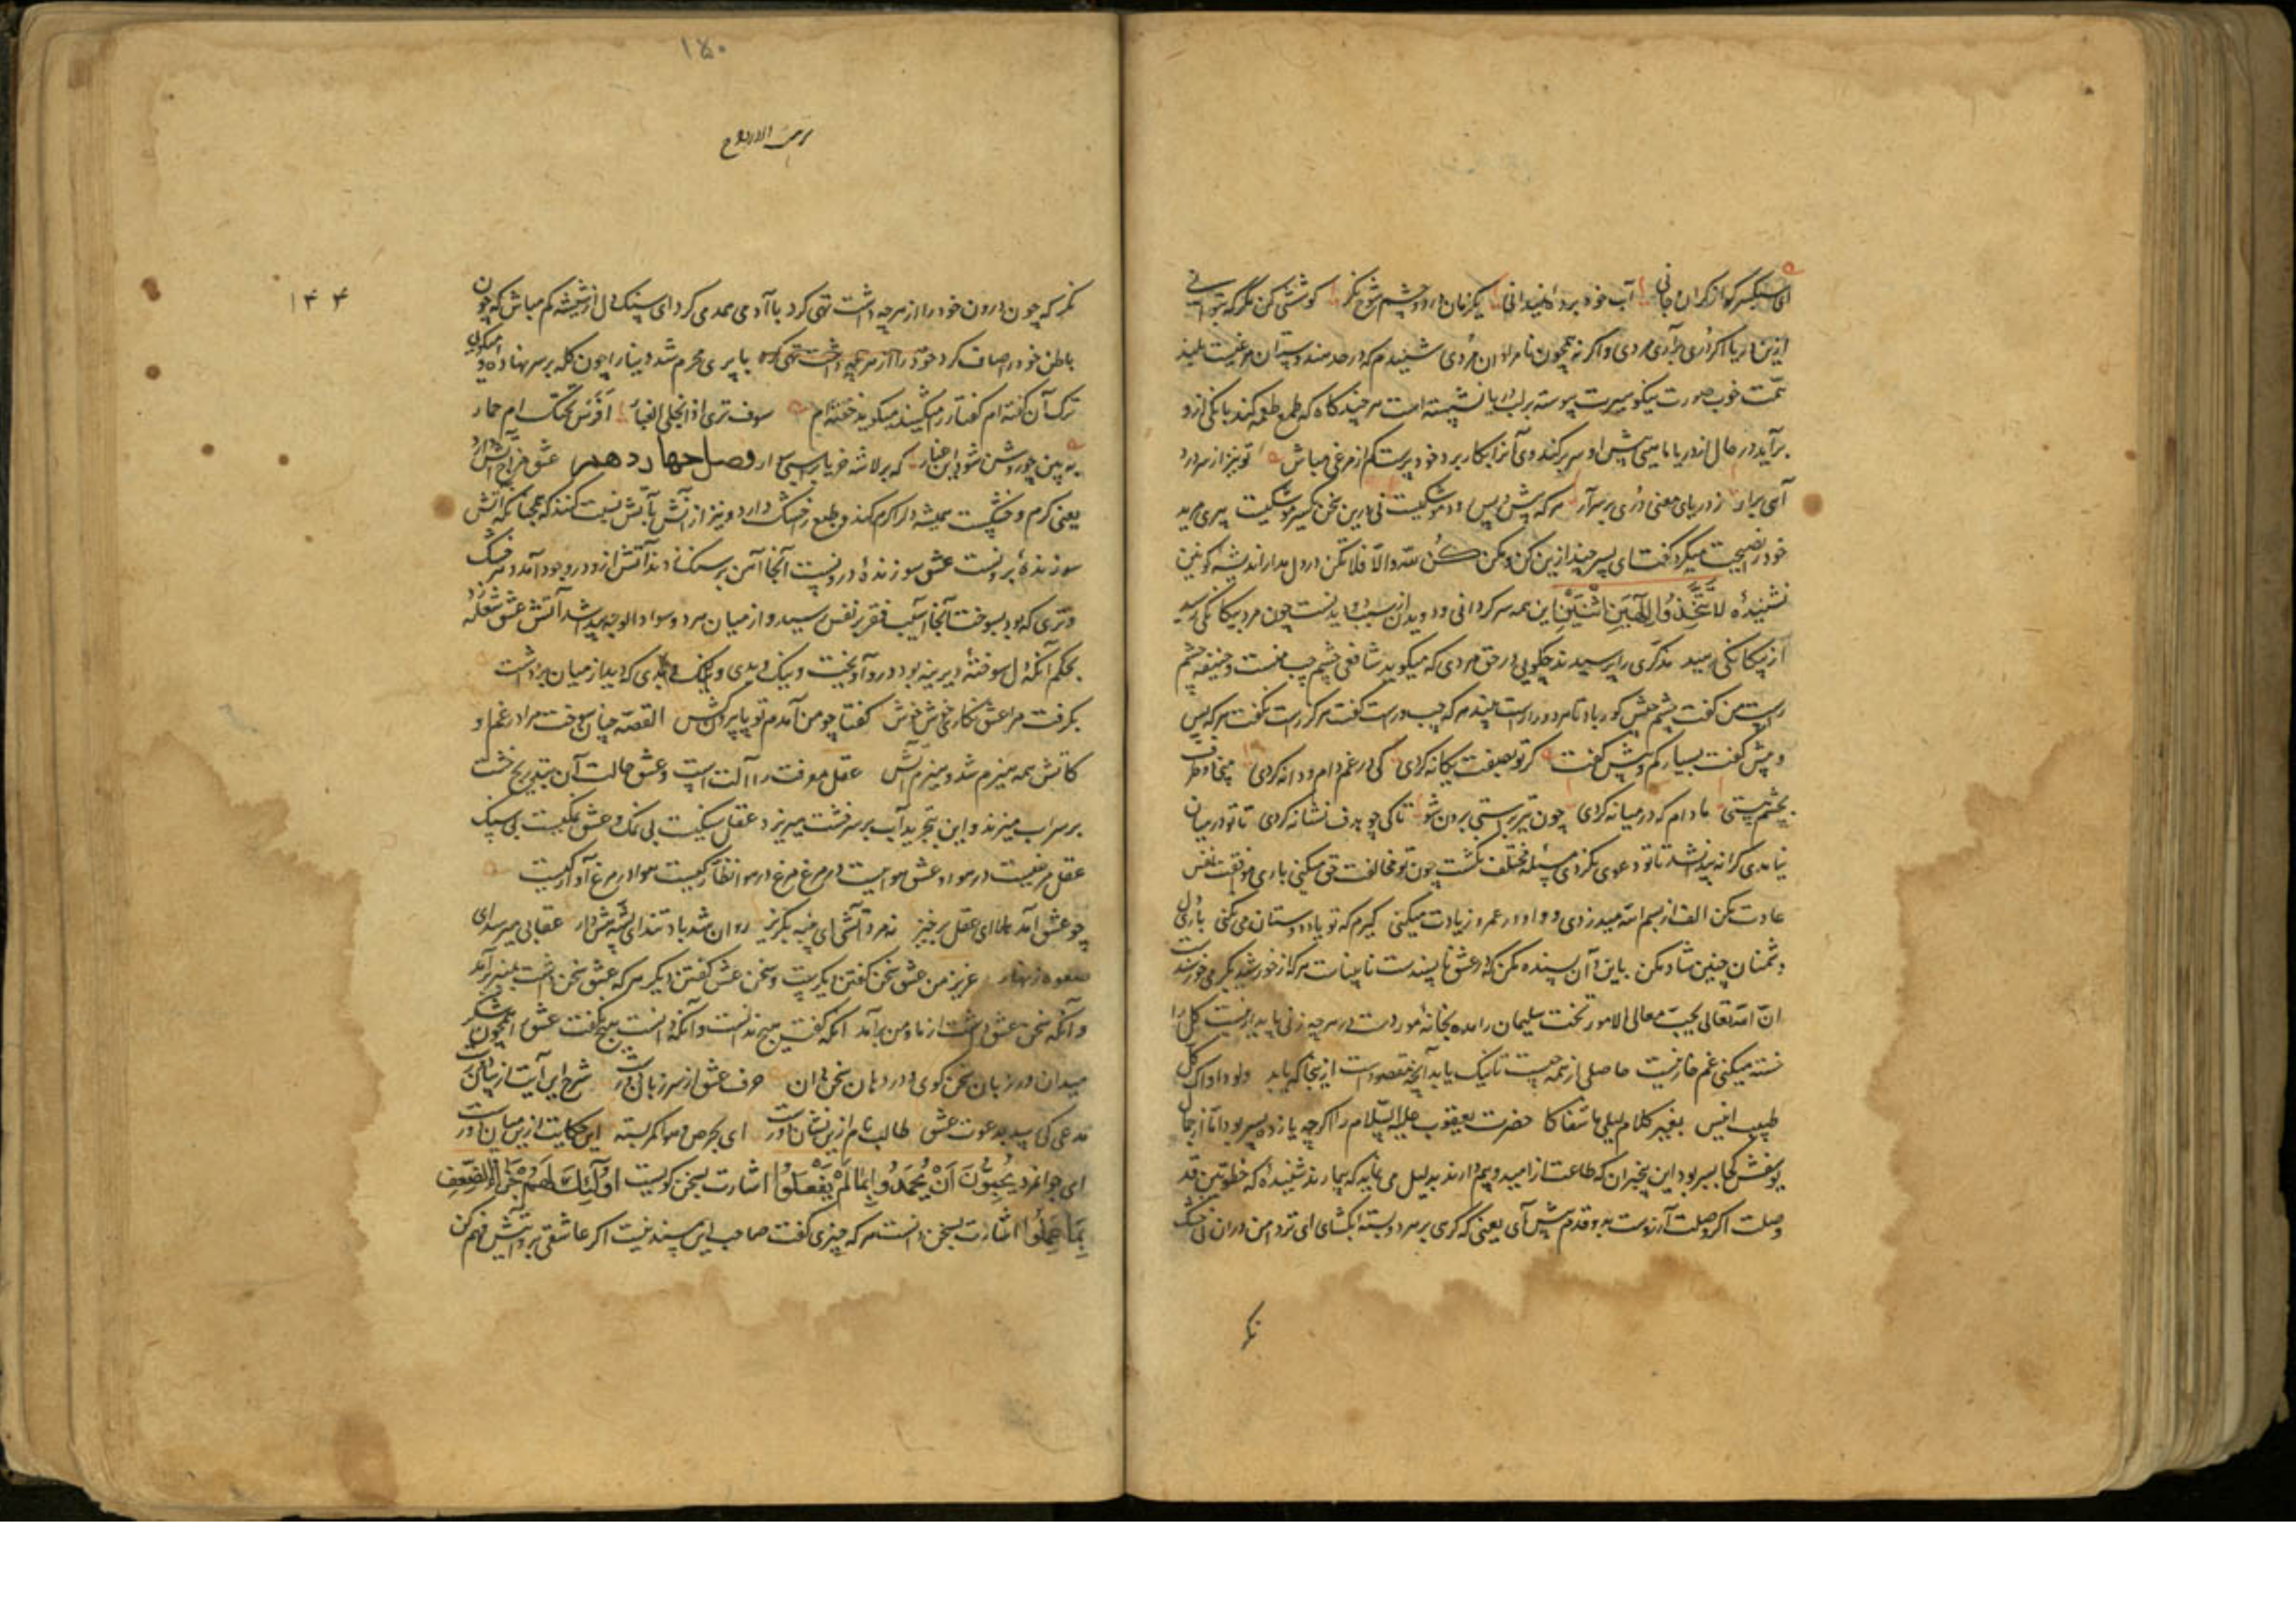 ای سبکسر کو از کران جانی آب خود برده نمیدانی یکزمان در دو چشم شوخ نکر کوششی کن مکر که بتوانی
ازین دریا اکر دری برآری مردی و اکر نه همچون نامردان مردی شنیدم که در حد هندوستان مرغیست بلند
همت خوب صورت نیکو سیرت پیوسته بر لب دریا نشسته است هر چند کاه که طمع طعمه کند بانکی ازو
برآید در حال از دریا ماهیی پیش او سر برکند وی آنرا بکار برد خود پرست کم از مرغی مباش تو نیز از سر درد
آهی برار ز دریای معنی دری بر سر آر هر که پیش و پس رود مشکیست نی درین سخن کسیر موشکیست پیری مرید
خود را نصیحت میکرد کفت ای پسر چند ازین کن و مکن کن لله والا فلا تکن در دل مدار اندیشه کونین
نشنیدهٔ لا تتخذوا الهین اثنین این همه سر کردانی و دویدن از سبب
از بیکانکی رسید مذکری را پرسیدند چکویی در حق مردی که میکوید شافعی چشم چپ منست و حنیفه چشم
راست من کفت چشم حق کور باد تا مردو را راست بیند هر که چپ و راست کفت هرکز راست نکفت هر که پس
و پیش کفت بسیار کم و بیش کفت کر تو بصفت یکانه کردی کی در غم دام و دانه کردی
بچشم هستی مادام که در میانه کردی چون تیر برستی برون شو تا کی چو هدف نشانه کردی تا تو در میان
نیامدی کرانه پیدا نشد تا تو دعوی نکردی مسئله مختلف نکشت چون تو مخالفت حق میکنی باری موافقت نفس
عادت مکن الف از بسم الله میدزدی و واو در عمرو زیادت میکنی کیرم که تو یاد دوستان می نکنی باری دل
دشمنان چنین شاد مکن باین و آن بسنده مکن که در عشق ناپسندست نابیناست هر که از خورشید بکرمی خورسندست
ان الله تعالی یحب معالی الامور تخت سلیمان را مده بخانهٔ مور
خسته میکنی غم خار نیست حاصلی از همه چیست تا نیک یابد آنچه مقصود است از ینجا که یابد
طبیب انیس بغیر کلام لیلی ما شفاکا حضرت یعقوب علیه السلام را اکرچه یازده پسر بود اما از جمال
یوسفش کجا بسر بود این بیخبران که طاعت از امید و بیم دارند بدلیل می نماید که بیمارند نشنیدهٔ که خطوتین قد
وصلت اکر وصلت آرزوست بدو قدم پیش آی یعنی که کرسی بر سر دو بسته ابکشای ای تردامن دران خشک
نکر
۱۵۰
نزهت الارواح
۱۴۴
نکر که چون درون خود را از هر چه داشت تهی کرد با آدمی همدمی کرد ای سنک دل از شیشه کم مباش که چون
باطن خود را صاف کرد خود را از هر چه داشت تهی کرد با پری محرم شد دینار را چون کله بر سر نهاده و میکوی
ترک آن کفته ام کفتار را میکشند میکوید خفته ام سوف تری اذا انجلی الغبار افرس تحتک ام حمار
به بین چو روشن شود این غبار که بر لاشه خر یا بر اسبی سوار فصل چهاردهم عشق مزاج آتش دارد
یعنی کرم و خشکست همیشه دل را کرم کند و طبع را خشک دارد و نیز از آتش بآتش نسبت کنند که همچنانکه آتش
سوزندهٔ برونست عشق سوزندهٔ درونست آنجا آهن بر سنک زدند آتش ازو در وجود آمد و هر خشک
و تری که بود بسوخت آنجا آسیب فقر بر نفس رسید و از میان مرد و سواد الوجه پیدا شد آتش عشق شعله زد
بحکم آنکه دل سوختهٔ دیرینه بود درو آویخت و نیک و بدی و ننک و بدی که دید از میان برداشت
بکرفت مرا عشق نکاری خوش خوش کفتا چو من آمدم تو پا بیرون کش القصه چنان بسوخت مرا در غم او
کاتش همه هیزم شد و هیزم آتش عقل معرفت را آلت است و عشق حالت آن بتدریج خشت
بر سر آب میزند و این بتجرید آب بر سر خشت میریزد عقل سنکیست بی نمک و عشق نمکیست بی سنک
عقل مرغیست در هوا و عشق هواییست در مرغ مرغ در هوا نظارکیست هوا در مرغ آوارکیست
چو عشق آمد هلا ای عقل برخیز نه مرد آتشی ای پنبه بکریز روان شد باد تند ای پشه هش دار عقابی میرسد ای
صعوه زنهار عزیز من عشق سخن کفتن دیکرست و سخن عشق کفتن دیکر هر که عشق سخن داشت بمنبر برآمد
و آنکه سخن عشق داشت از ما و من برآمد آنکه کفت هیچ ندانست و آنکه دانست هیچ نکفت عشق را همچون شکر
میدان در زبان سخن کوی و در دهان سخن دان حرف عشق از سر زبان دورست شرح این آیت از بیان دورست
مدعی کی رسید بدعوت عشق طالب نام ازین نشان دورست ای بحرص و هوا کمر بسته این حکایت ازین میان دورست
ای جوانمرد یحبون ان یحمدوا بما لم یفعلوا اشارت بسخن کویست اولئک لهم جزاء الضعف
بما عملوا اشارت بسخن دانست هر که چیزی کفت صاحب این سپند نیست اکر عاشقی برو آتش فهم کن